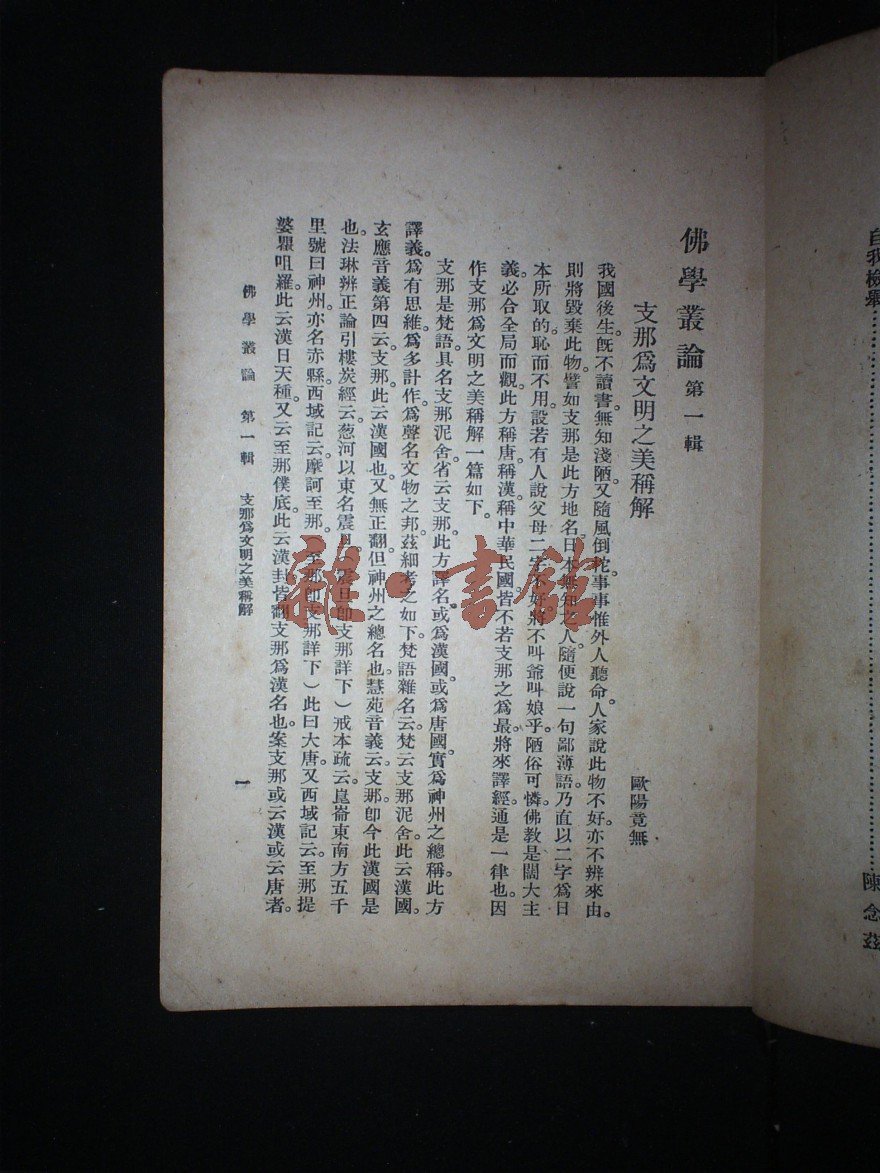 自我檢舉……陳念茲
佛學叢論 第一輯
支那爲文明之美稱解
歐陽竟無
我國後生。既不讀書。無知淺陋。又隨風倒柁。事事惟外人聽命。人家說此物不好。亦不辨來由。
則將毀棄此物。譬如支那是此方地名。日本無知之人。隨便說一句鄙薄語。乃直以二字爲日
本所取的恥而不用。設若有人說父母二字不好。將不叫爺叫娘乎。陋俗可憐。佛教是闊大主
義。必合全局而觀。此方稱唐。稱漢。稱中華民國。皆不若支那之爲最。將來譯經。通是一律也。因
作支那爲文明之美稱解一篇如下。
支那是梵語。具名支那泥舍。省云支那。此方譯名。或爲漢國。或爲唐國。實爲神州之總稱。此方
譯義。爲有思維。爲多計作。爲聲名文物之邦。茲細考之如下。梵語雜名云。梵云支那泥舍。此云漢國。
玄應音義第四云。支那。此云漢國也。又無正翻。但神州之總名也。慧苑音義云。支那。卽今此漢國是
也。法琳辨正論引樓炭經云。葱河以東名震旦。(震旦卽支那詳下)戒本疏云。崑崙東南方五千
里。號曰神州。亦名赤縣。西域記云。摩訶至那。(至那卽支那詳下)此曰大唐。又西域記云。至那提
婆瞿呾羅。此云漢日天種。又云至那僕底。此云漢封。皆翻支那爲漢名也。案支那或云漢或云唐者。
佛學叢論 第一輯 支那爲文明之美稱解
一
雜·書館